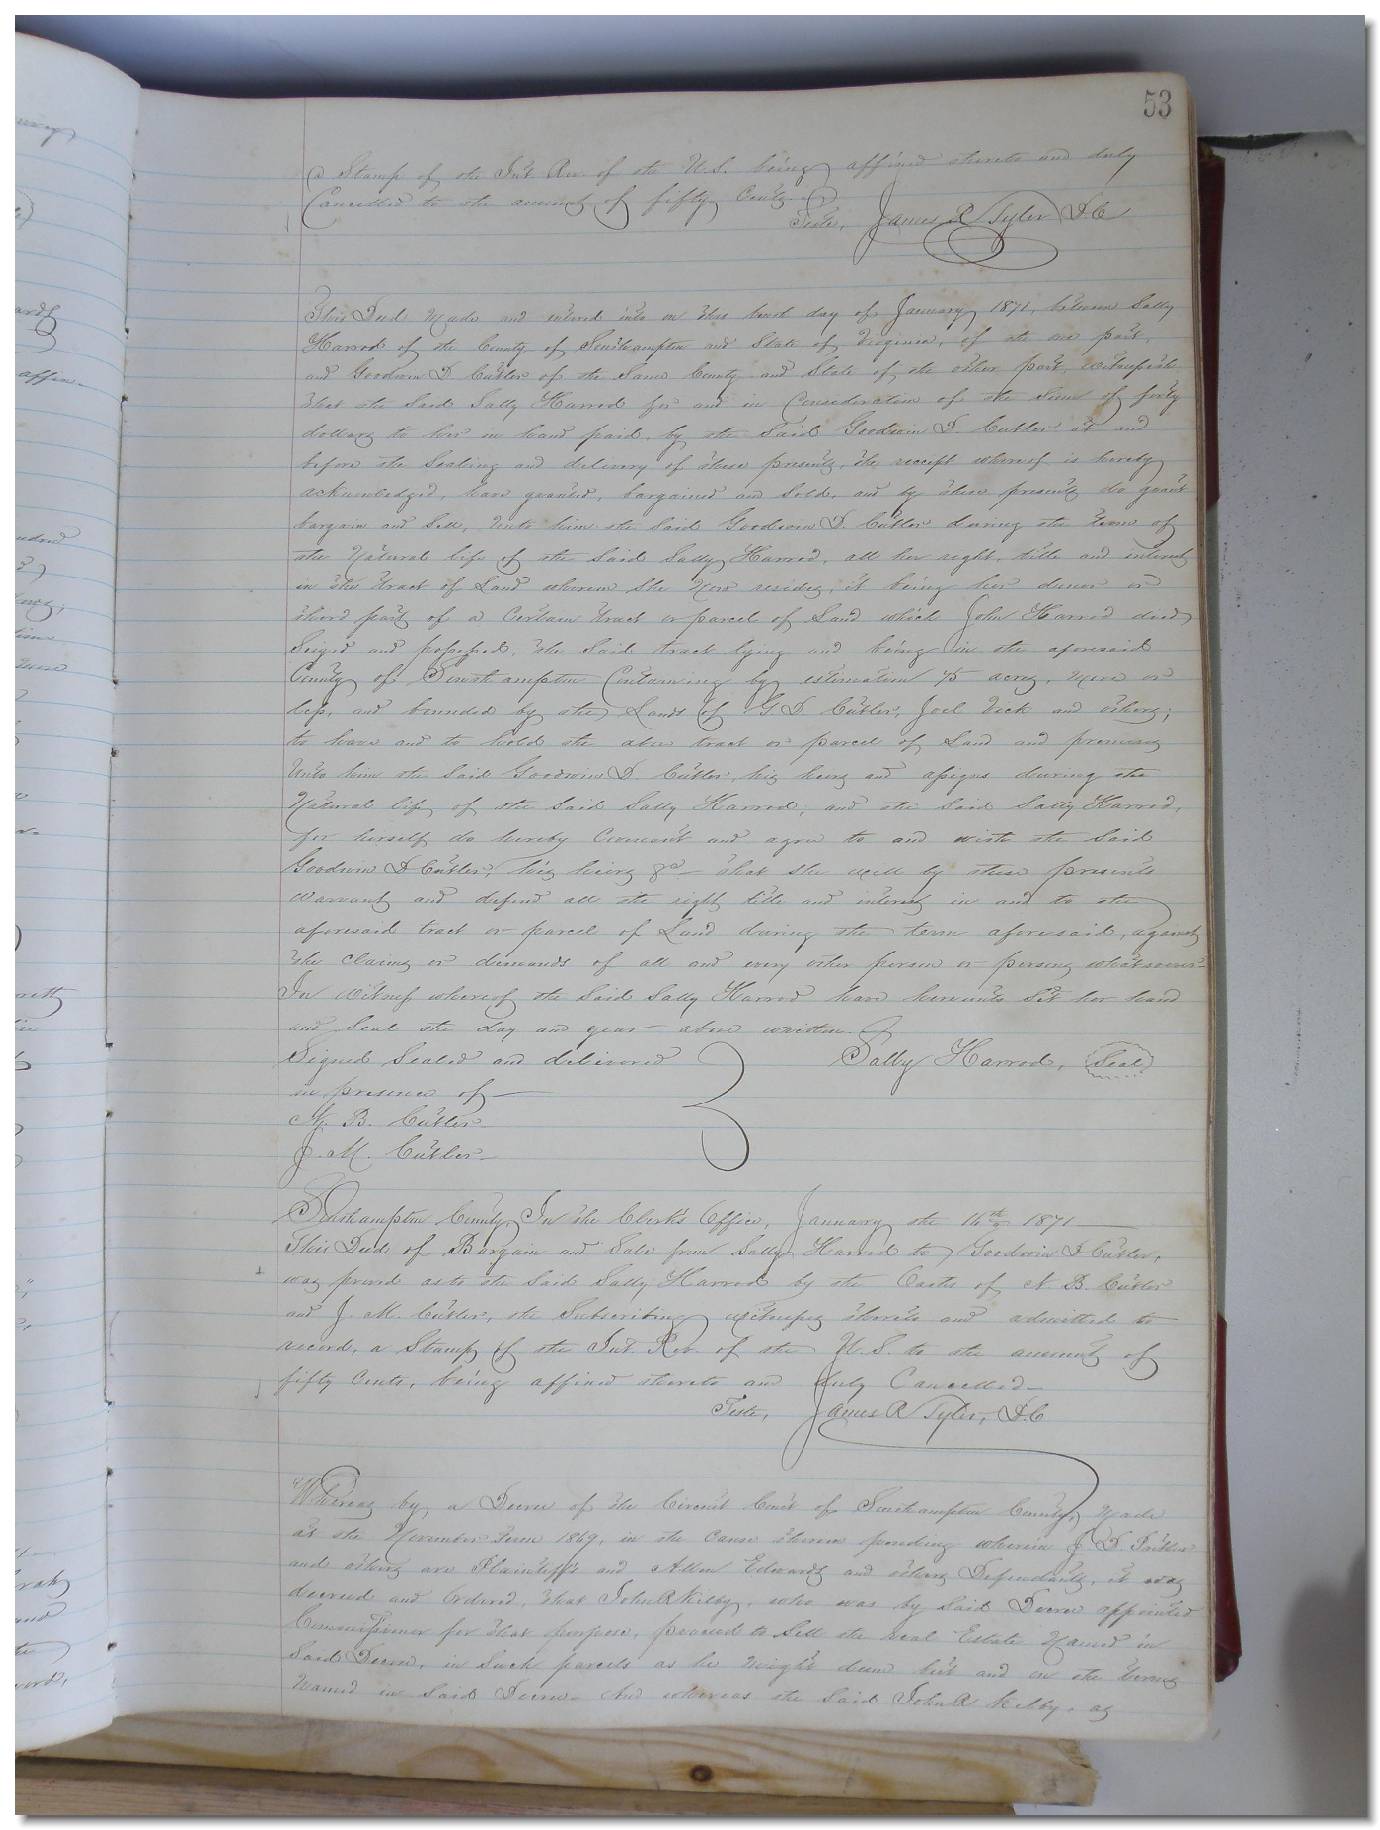 53
a Stamp of the Int Rev. of the U.S. being affixed thereto and duly
Cancelled to the amount of fifty Cents.
Teste, James R Tyler D.C
This Deed Made and entered into on this day of January 1871, between Sally
Harrod of the County of Southampton and State of Virginia, of the one part,
and Goodwin D Cutler of the Same County and State of the other part, Witnesseth
that the Said Sally Harrod for and in Consideration of the Sum of forty
dollars to her in hand paid, by the Said Goodwin D. Cutler at and
before the Sealing and delivery of these presents, the receipt whereof is hereby
acknowledged, have granted, bargained and Sold, and by these presents do grant
bargain and Sell, Unto him the Said Goodwin D. Cutler during the term of
the Natural life of the Said Sally Harrod, all her right, title and interest
in the tract of Land wherein She Now resides, it being her dower or
third part of a Certain tract or parcel of Land which John Harrod died
Seized and possessed, the Said tract lying and being in the aforesaid
County of Southampton Containing by estimation 75 acres, More or
less, and bounded by the Lands of G D Cutler, Joel Vick and others;
to have and to hold the above tract or parcel of Land and premises
Unto him the Said Goodwin D. Cutler, his heirs and assigns during the
Natural life of the Said Sally Harrod; and the Said Sally Harrod,
for herself do hereby Covenant and agree to and with the Said
Goodwin D Cutler, his heirs &c - that She will by these presents
warrant and defend all the right title and interest in and to the
aforesaid tract or parcel of Land during the term aforesaid, against
the claims or demands of all and every other person or persons whatsoever-
In Witness whereof the Said Sally Harrod have hereunto Set her hand
and Seal the day and year above written.
Signed Sealed and delivered Sally Harrod, Seal
in presence of
N. B. Cutler
J. M. Cutler
Southampton County, In the Clerk's Office, January the 16th 1871
This Deed of Bargain and Sale from Sally Harrod to Goodwin D Cutler,
was proved as to the Said Sally Harrod by the Oaths of N B. Cutler
and J. M. Cutler, the Subscribing witnesses thereto and admitted to
record, a Stamp of the Int. Rev. of the U.S. to the amount of
fifty Cents, being affixed thereto and duly Cancelled
Teste, James R Tyler, D.C
Whereas by a Decree of the Circuit Court of Southampton County, Made
at the November Term 1869, in the Cause therein pending wherein J. D.
and others are Plaintiffs and Allen Edwards and others Defendants, it was
decreed and Ordered, that John R Kilby, who was by Said Decree appointed
Commissioner for that purpose, proceed to Sell the real Estate Named in
Said Decree, in Such parcels as he might deem best and on the terms
Named in Said Decree. And whereas the Said John R Kilby, as